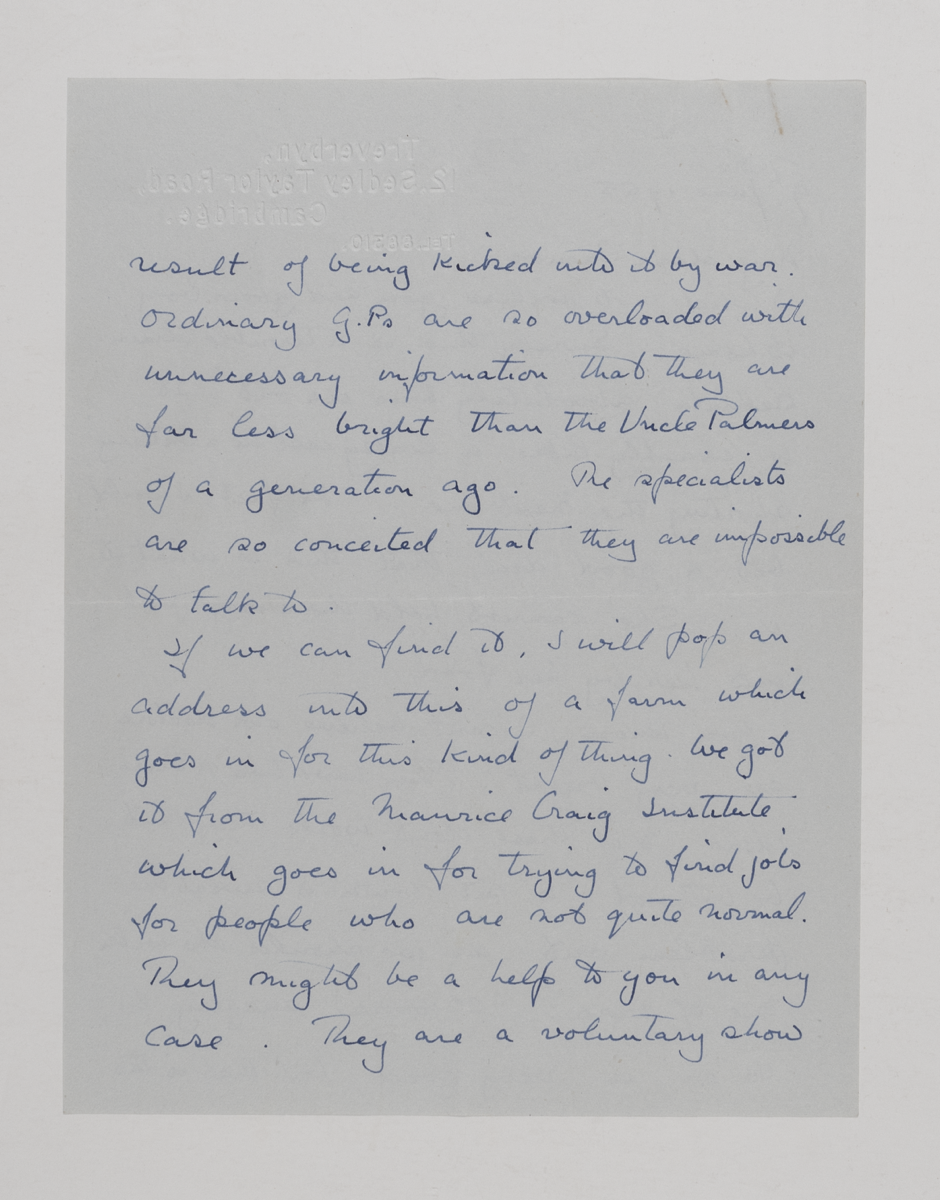 Treverbyn,
12, Sedley Taylor Road,
Cambridge.
result of being kicked into it by war.
Ordinary G.Ps are so overloaded with
unnecessary information that they are
far less bright than the Uncle Palmers
of a generation ago. The specialists
are so conceited that they are impossible
to talk to.
If we can find it, I will pop an
address into this of a farm which
goes in for this kind of thing. We got
it from the Maurice Craig Institute
which goes in for trying to find jobs
for people who are not quite normal.
They might be a help to you in any
case. They are a voluntary show